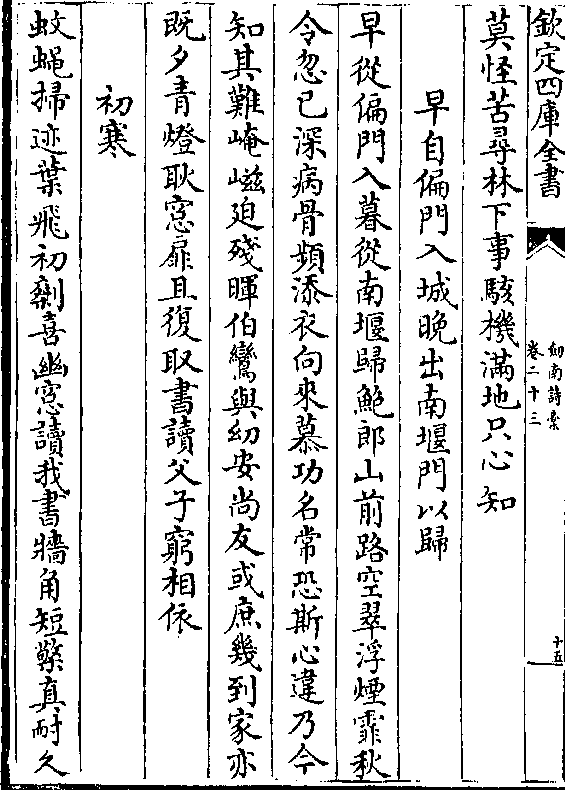 欽定四庫全書
劍南詩稾
卷二十三
十五
莫怪苦尋林下事駭機滿地只心知
早自偏門入城晚出南堰門以歸
早從偏門入暮從南堰歸鮑郎山前路空翠浮煙霏秋
令忽已深病骨頻添衣向來慕功名常恐斯心違乃今
知其難崦嵫迫殘暉伯鸞與幼安尚友或庶幾到家亦
既夕青燈耿窓扉且復取書讀父子窮相依
初寒
蚊蝇掃迹葉飛初剰喜幽窓讀我書牆角短檠真耐久